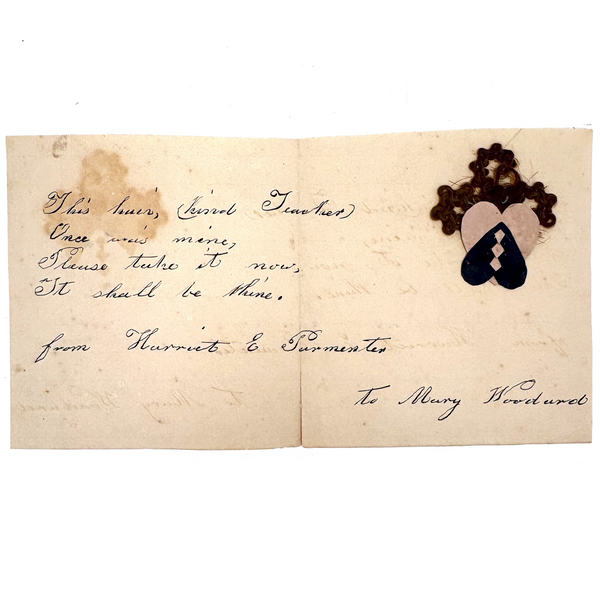 This hair, (kind Teacher)
Once was mine,
Please take it now,
It shall be thine.
from Harriet E Parmenter
to Mary Woodard